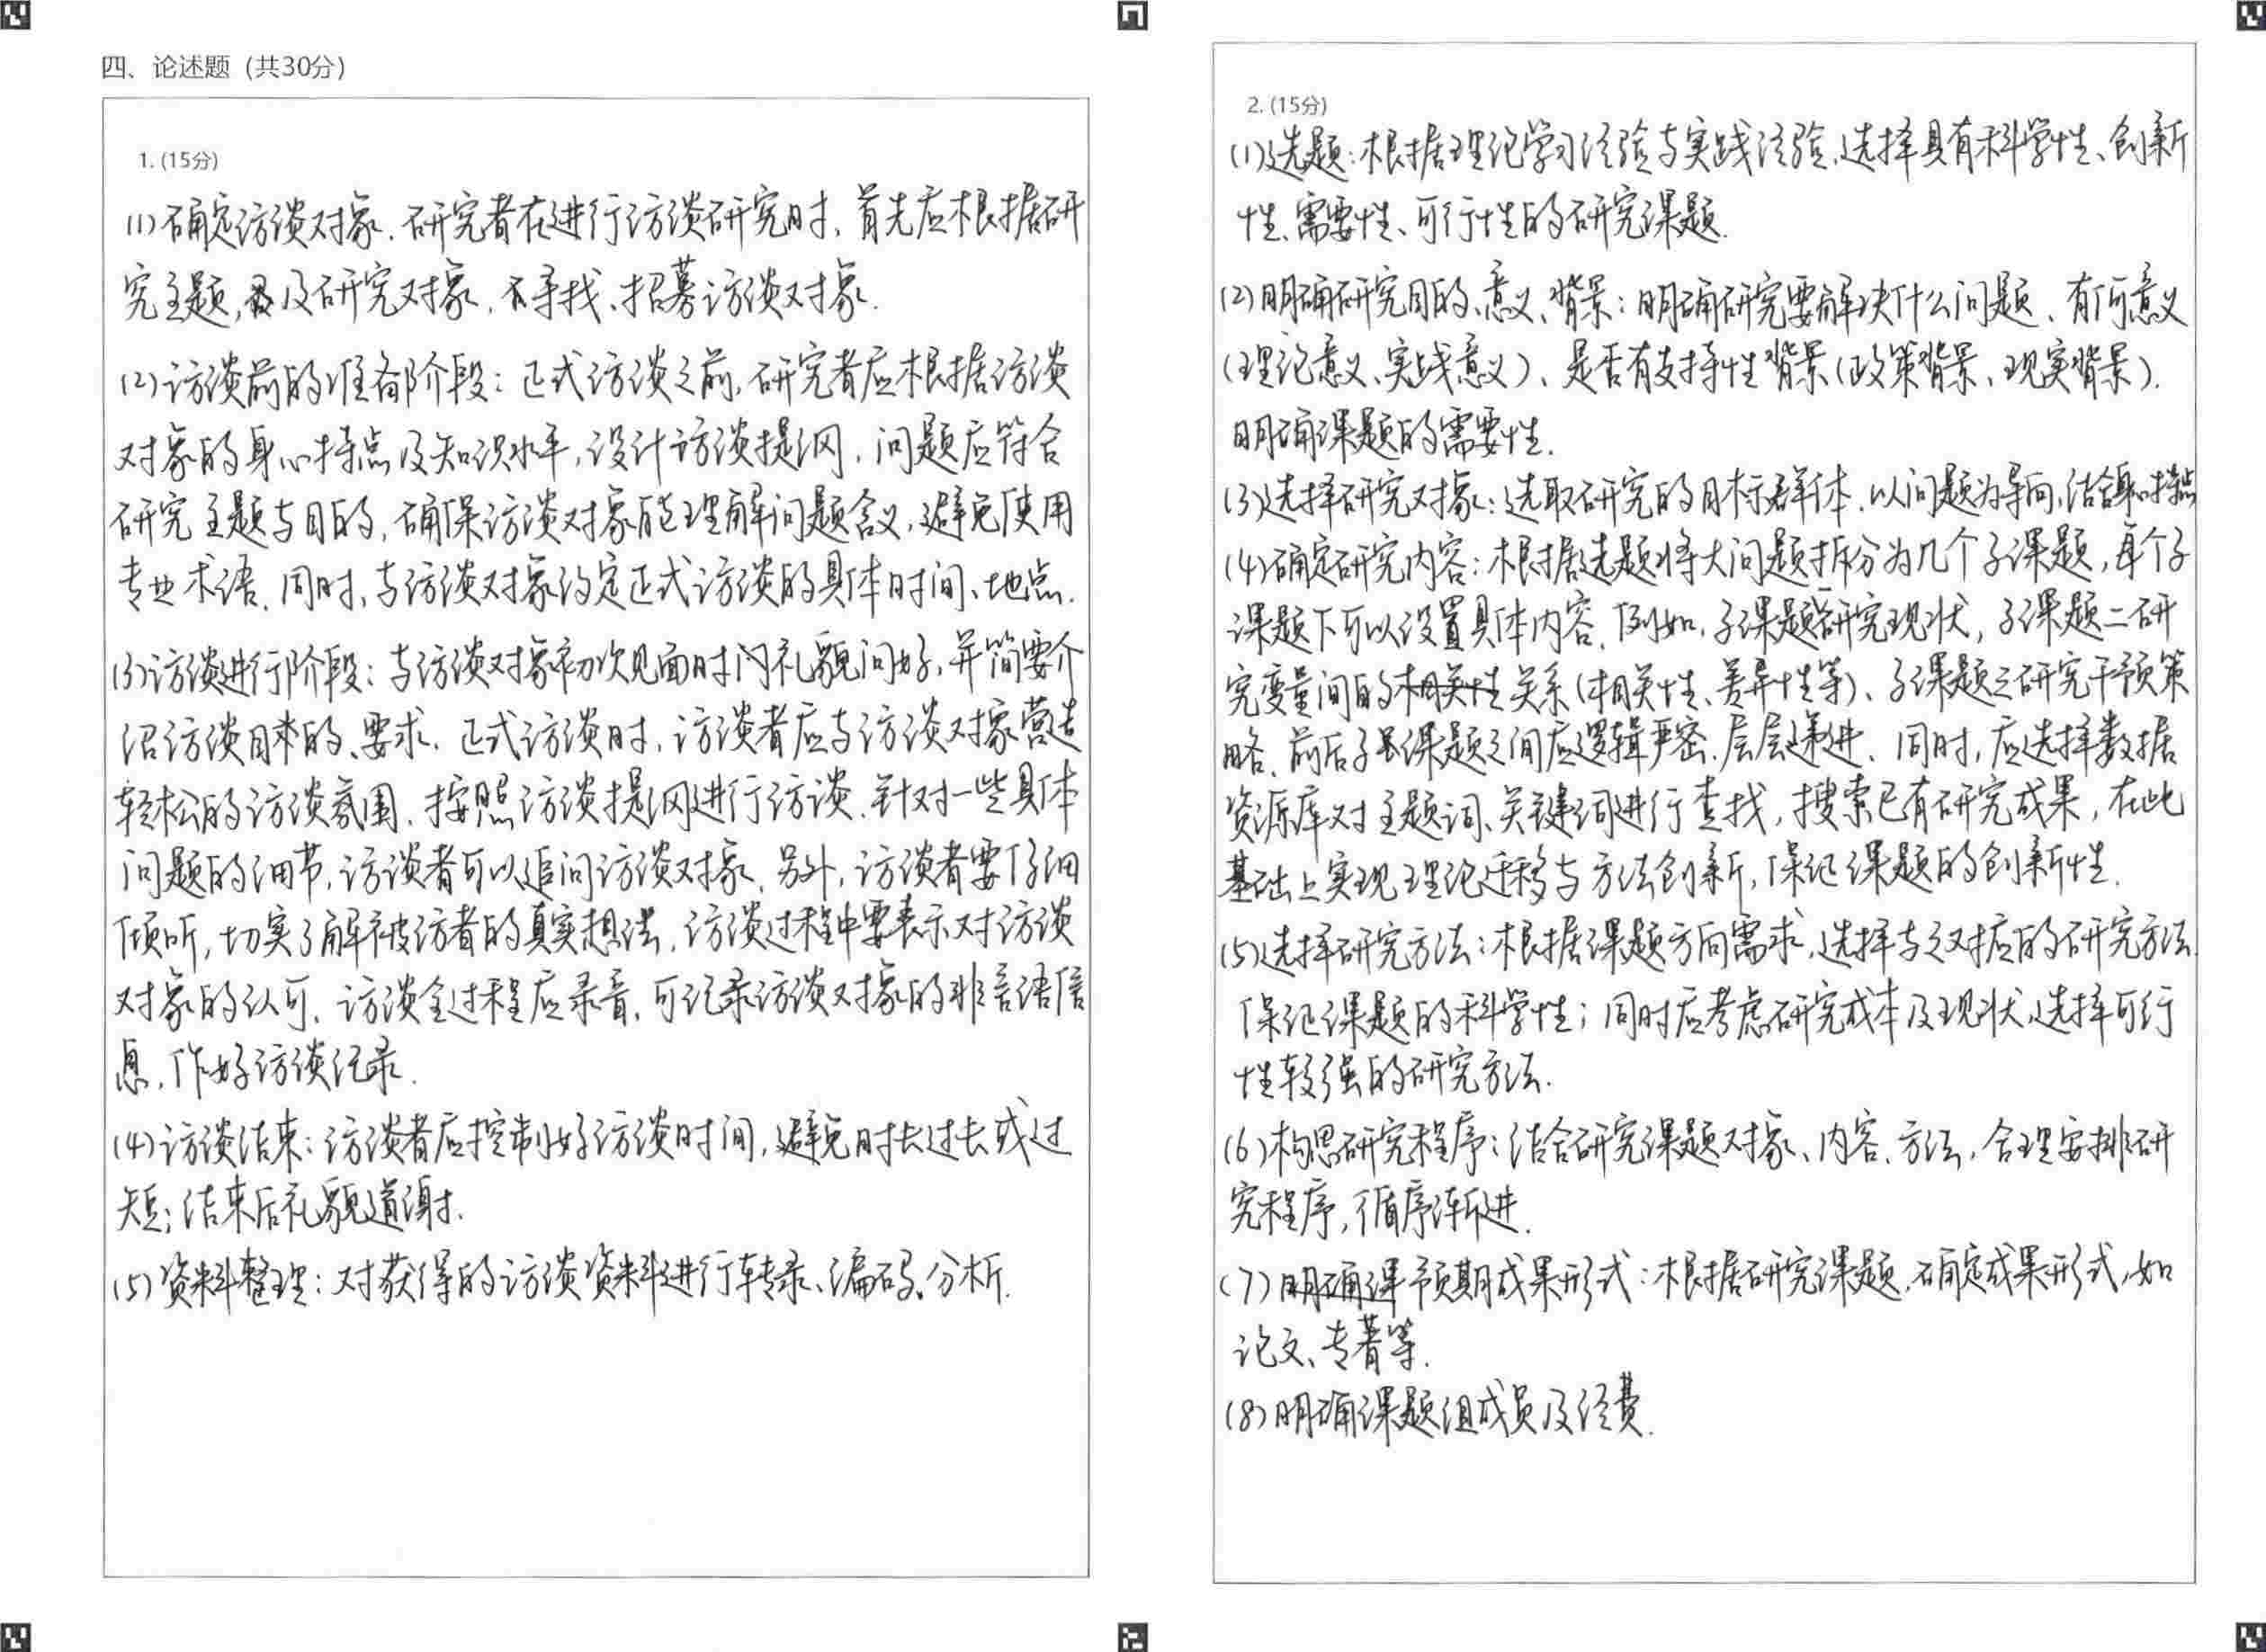 四、论述题 (共30分)
1. (15分)
(1)确定访谈对象.研究者在进行访谈研究时,首先应根据研
究主题,及研究对象,寻找、招募访谈对象.
(2)访谈前的准备阶段:正式访谈之前,研究者应根据访谈
对象的身心特点及知识水平,设计访谈提纲,问题应符合
研究主题与目的,确保访谈对象能理解问题含义,避免使用
专业术语.同时,与访谈对象约定正式访谈的具体时间、地点.
(3)访谈进行阶段:与访谈对象初次见面时礼貌问好,并简要介
绍访谈目的、要求.正式访谈时,访谈者应与访谈对象营造
轻松的访谈氛围,按照访谈提纲进行访谈.针对一些具体
问题的细节,访谈者可以追问访谈对象.另外,访谈者要仔细
倾听,切实了解被访者的真实想法,访谈过程中要表示对访谈
对象的认可.访谈全过程应录音,可记录访谈对象的非言语信
息,作好访谈记录.
(4)访谈结束:访谈者应控制好访谈时间,避免时长过长或过
短;结束后礼貌道谢.
(5)资料整理:对获得的访谈资料进行转录、编码、分析.
2. (15分)
(1)选题:根据理论学习经验与实践经验,选择具有科学性、创新
性、需要性、可行性的研究课题.
(2)明确研究目的、意义、背景:明确研究要解决什么问题、有何意义
(理论意义、实践意义)、是否有支持性背景(政策背景、现实背景).
明确课题的需要性.
(3)选择研究对象:选取研究的目标群体.以问题为导向,结合身心特点
(4)确定研究内容:根据选题将大问题拆分为几个子课题,每个子
课题下可以设置具体内容.例如,子课题一研究现状,子课题二研
究变量间的关系(相关性、差异性等)、子课题三研究干预策
略.前后子课题之间应逻辑严密、层层递进.同时,应选择数据
资源库对主题词、关键词进行查找,搜索已有研究成果,在此
基础上实现理论迁移与方法创新,保证课题的创新性.
(5)选择研究方法:根据课题方向需求,选择与之对应的研究方法
保证课题的科学性;同时应考虑研究成本及现状,选择可行
性较强的研究方法.
(6)构思研究程序:结合研究课题对象、内容、方法,合理安排研
究程序,循序渐进.
(7)明确预期成果形式:根据研究课题,确定成果形式,如
论文、专著等.
(8)明确课题组成员及经费.